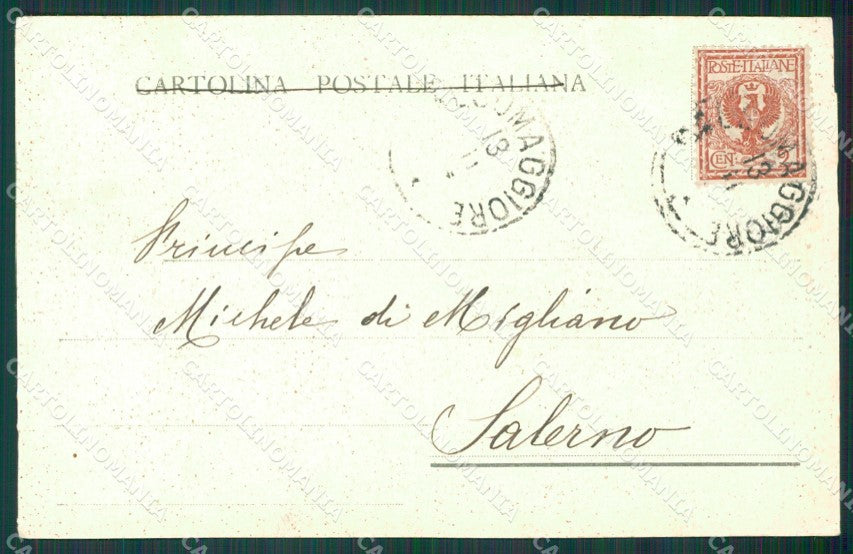 CARTOLINA POSTALE ITALIANA
POSTE ITALIANE
CEN. 2
MAGGIORE
13
MAGGIORE
13
Principe
Michele di Migliano
Salerno
CARTOLINOMANIA